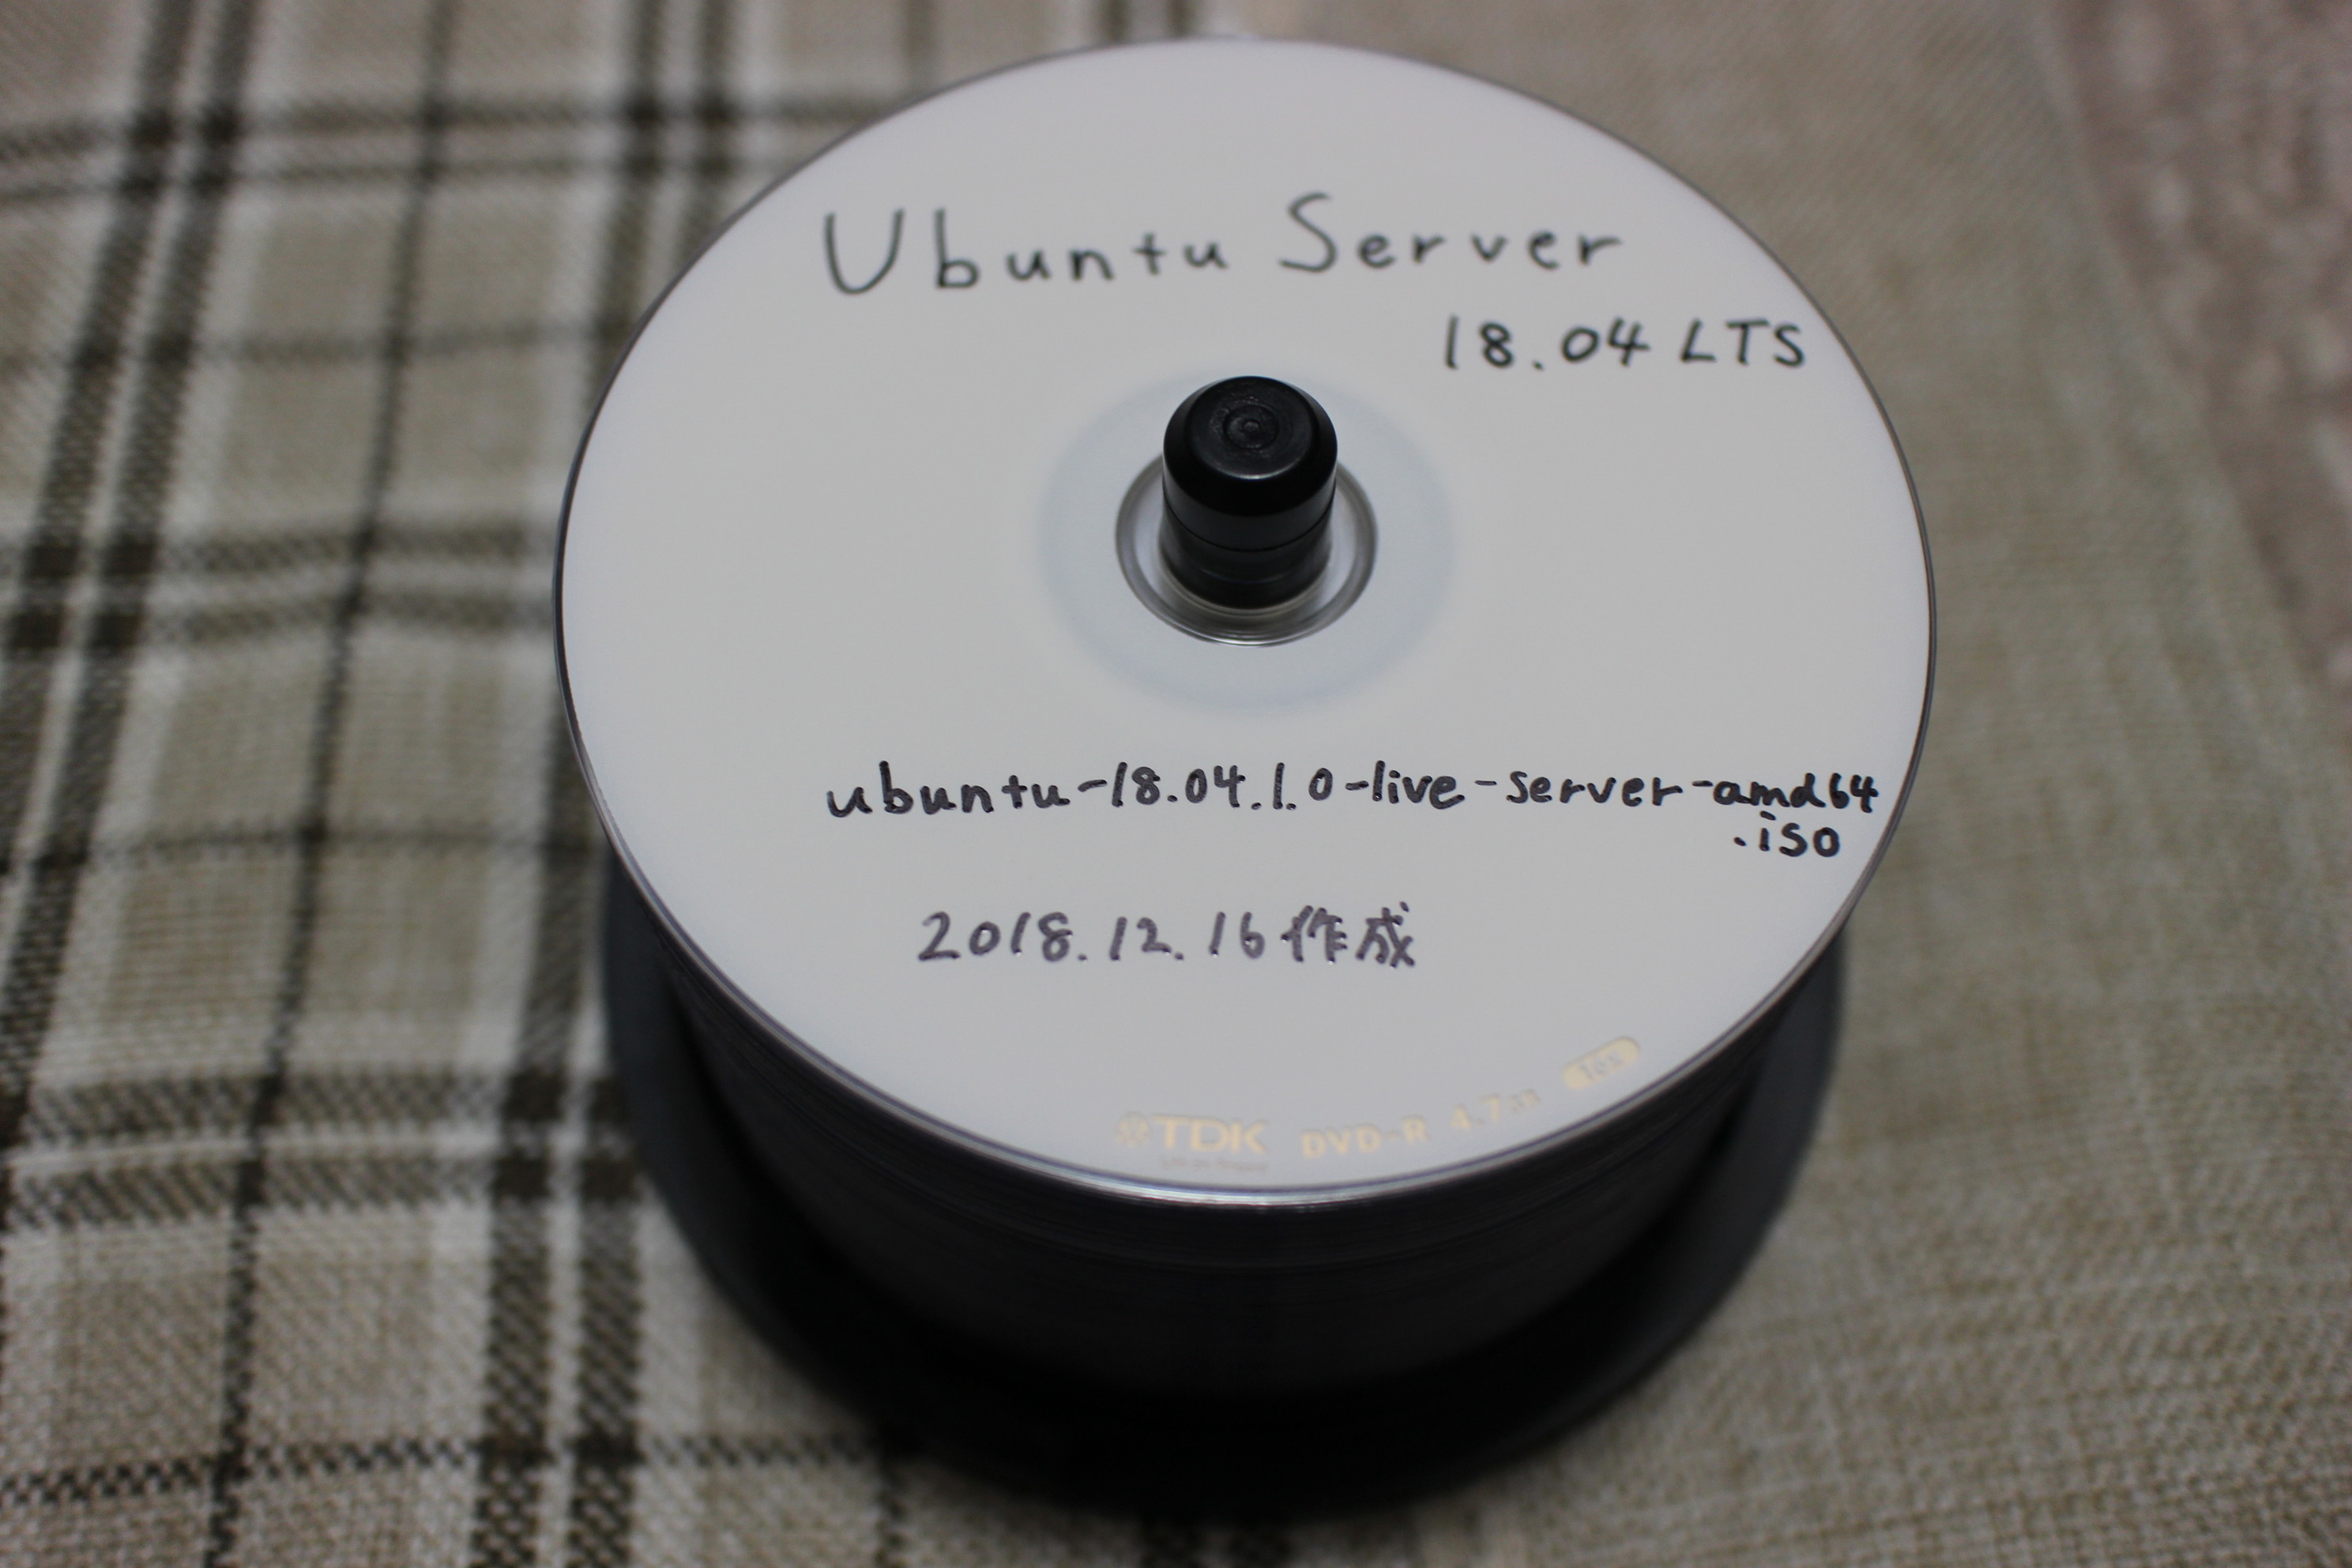 Ubuntu Server
18.04 LTS
ubuntu-18.04.1.0-live-server-amd64
.iso
2018.12.16作成
TDK DVD-R 4.7GB 16x